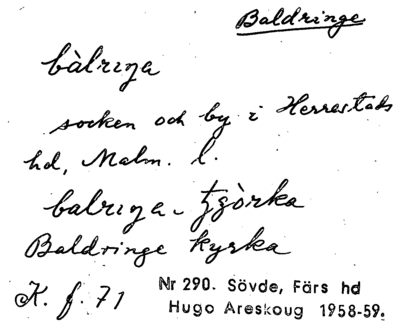 Baldringe
bàlrıŋa
socken och by i Herrestads
hd, Malm. l.
balrıŋa - tʒòrka
Baldringe kyrka
K. f. 71
Nr 290. Sövde, Färs hd
Hugo Areskoug 1958-59.